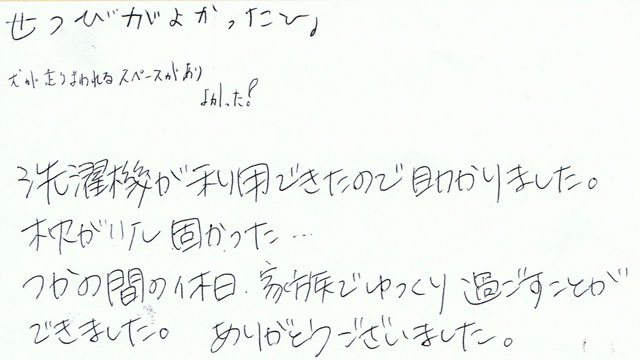 せつびがよかったで。
犬が走りまわれるスペースがあり
よかった!
洗濯機が利用できたので助かりました。
枕が少し固かった…
つかの間の休日、家族でゆっくり過ごすことが
できました。 ありがとうございました。